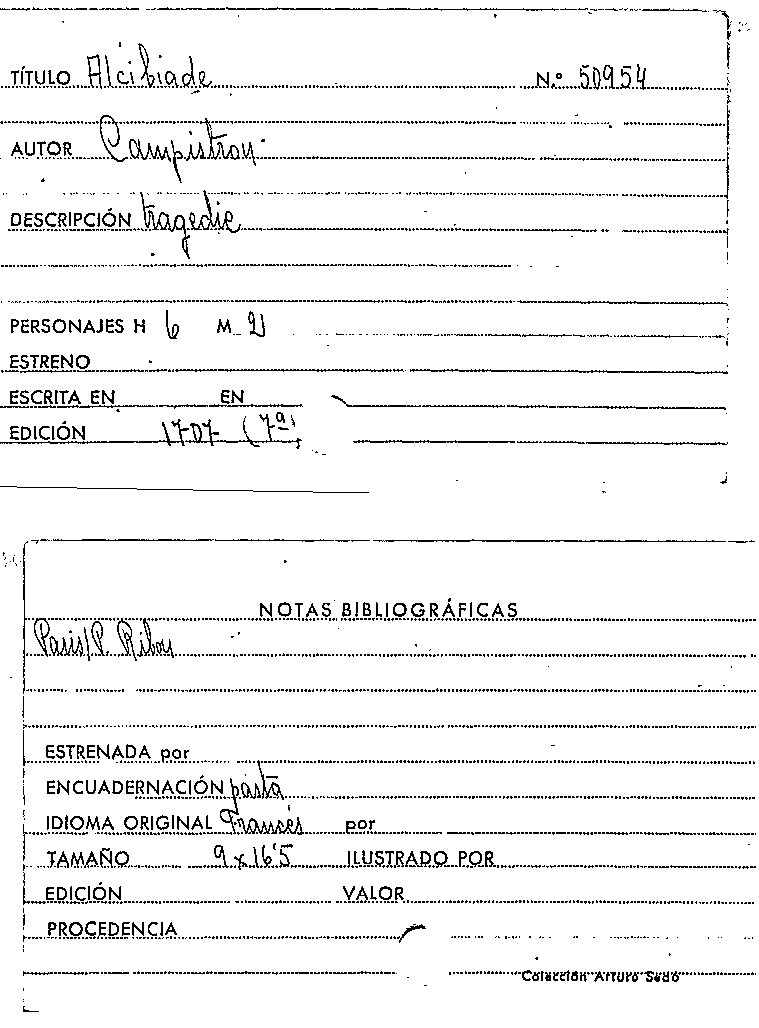 TÍTULO Alcibiade N.º 50954
AUTOR Campistron
DESCRIPCIÓN tragedie
PERSONAJES H 6 M 2
ESTRENO
ESCRITA EN EN
EDICIÓN 1707 (7ª)
NOTAS BIBLIOGRÁFICAS
Paris/P. Ribou
ESTRENADA por
ENCUADERNACIÓN pasta
IDIOMA ORIGINAL Francés por
TAMAÑO 9x16'5 ILUSTRADO POR
EDICIÓN VALOR
PROCEDENCIA
Colección Arturo Sedó